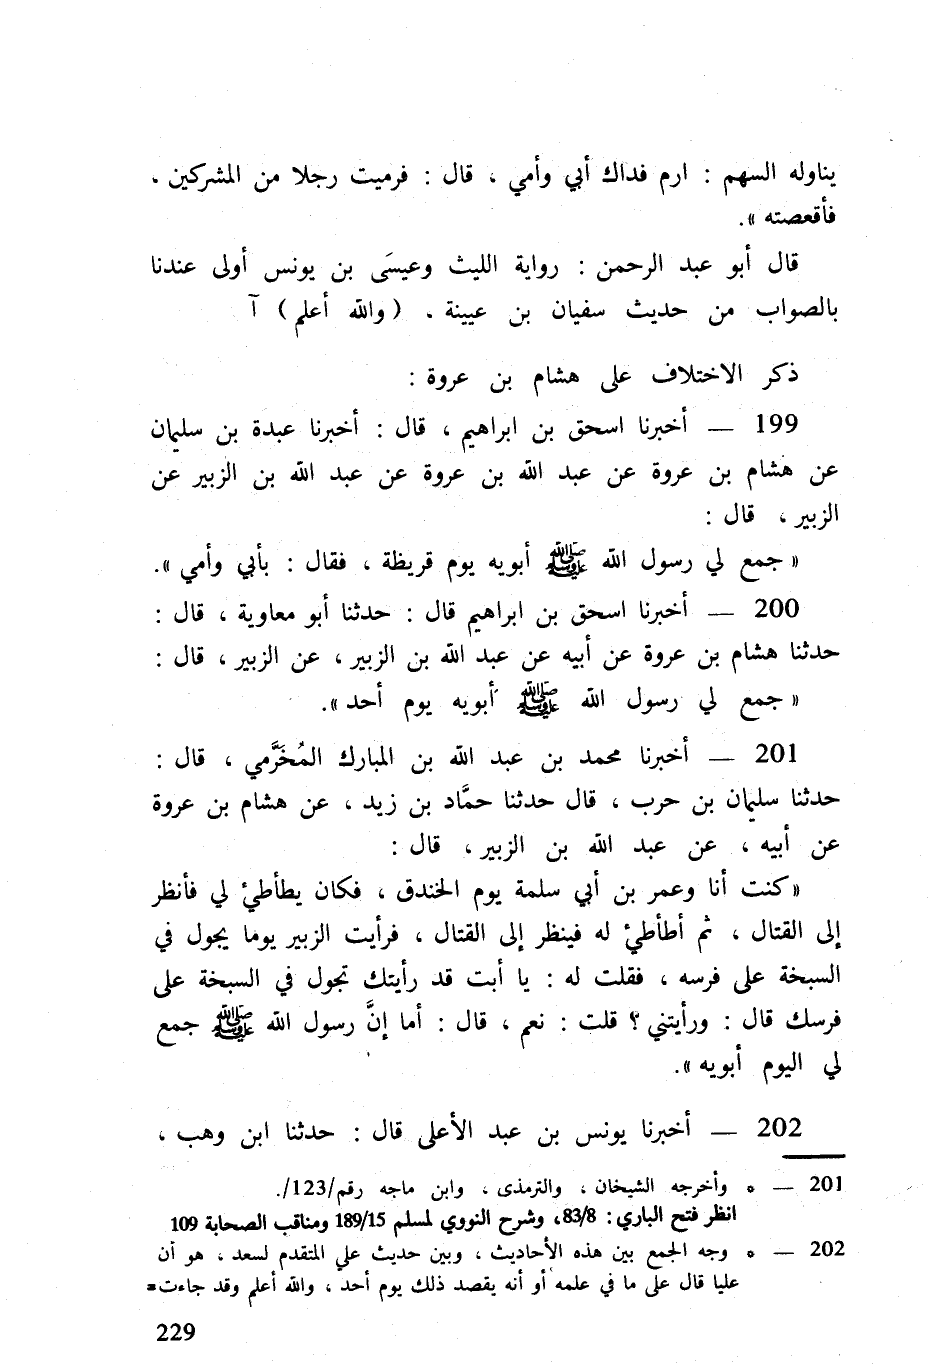 يناوله السهم : ارم فداك أبي وأمي ، قال : فرميت رجلا من المشركين .
فأقعصته ».
قال أبو عبد الرحمن : رواية الليث وعيسَى بن يونس أولى عندنا
بالصواب من حديث سفيان بن عيينة . ( والله أعلم ) آ
ذكر الاختلاف على هشام بن عروة :
199 — أخبرنا اسحق بن ابراهيم ، قال : أخبرنا عبدة بن سليمان
عن هشام بن عروة عن عبد الله بن عروة عن عبد الله بن الزبير عن
الزبير ، قال :
« جمع لي رسول الله ﷺ أبويه يوم قريظة ، فقال : بأبي وأمي ».
200 — أخبرنا اسحق بن ابراهيم قال : حدثنا أبو معاوية ، قال :
حدثنا هشام بن عروة عن أبيه عن عبد الله بن الزبير ، عن الزبير ، قال :
« جمع لي رسول الله ﷺ أبويه يوم أحد ».
201 — أخبرنا محمد بن عبد الله بن المبارك المُخَرَّمي ، قال :
حدثنا سليمان بن حرب ، قال حدثنا حمَّاد بن زيد ، عن هشام بن عروة
عن أبيه ، عن عبد الله بن الزبير ، قال :
«كنت أنا وعمر بن أبي سلمة يوم الخندق ، فكان يطأطئ لي فأنظر
إلى القتال ، ثم أطأطئ له فينظر إلى القتال ، فرأيت الزبير يوما يجول في
السبخة على فرسه ، فقلت له : يا أبت قد رأيتك تجول في السبخة على
فرسك قال : ورأيتني ؟ قلت : نعم ، قال : أما إنَّ رسول الله ﷺ جمع
لي اليوم أبويه ».
202 — أخبرنا يونس بن عبد الأعلى قال : حدثنا ابن وهب ،
201 — ٥ وأخرجه الشيخان ، والترمذى ، وابن ماجه رقم/123/.
انظر فتح الباري : 83/8، وشرح النووي لمسلم 189/15 ومناقب الصحابة 109
202 — ٥ وجه الجمع بين هذه الأحاديث ، وبين حديث علي المتقدم لسعد ، هو أن
عليا قال على ما في علمه أو أنه يقصد ذلك يوم أحد ، والله أعلم وقد جاءت=
229